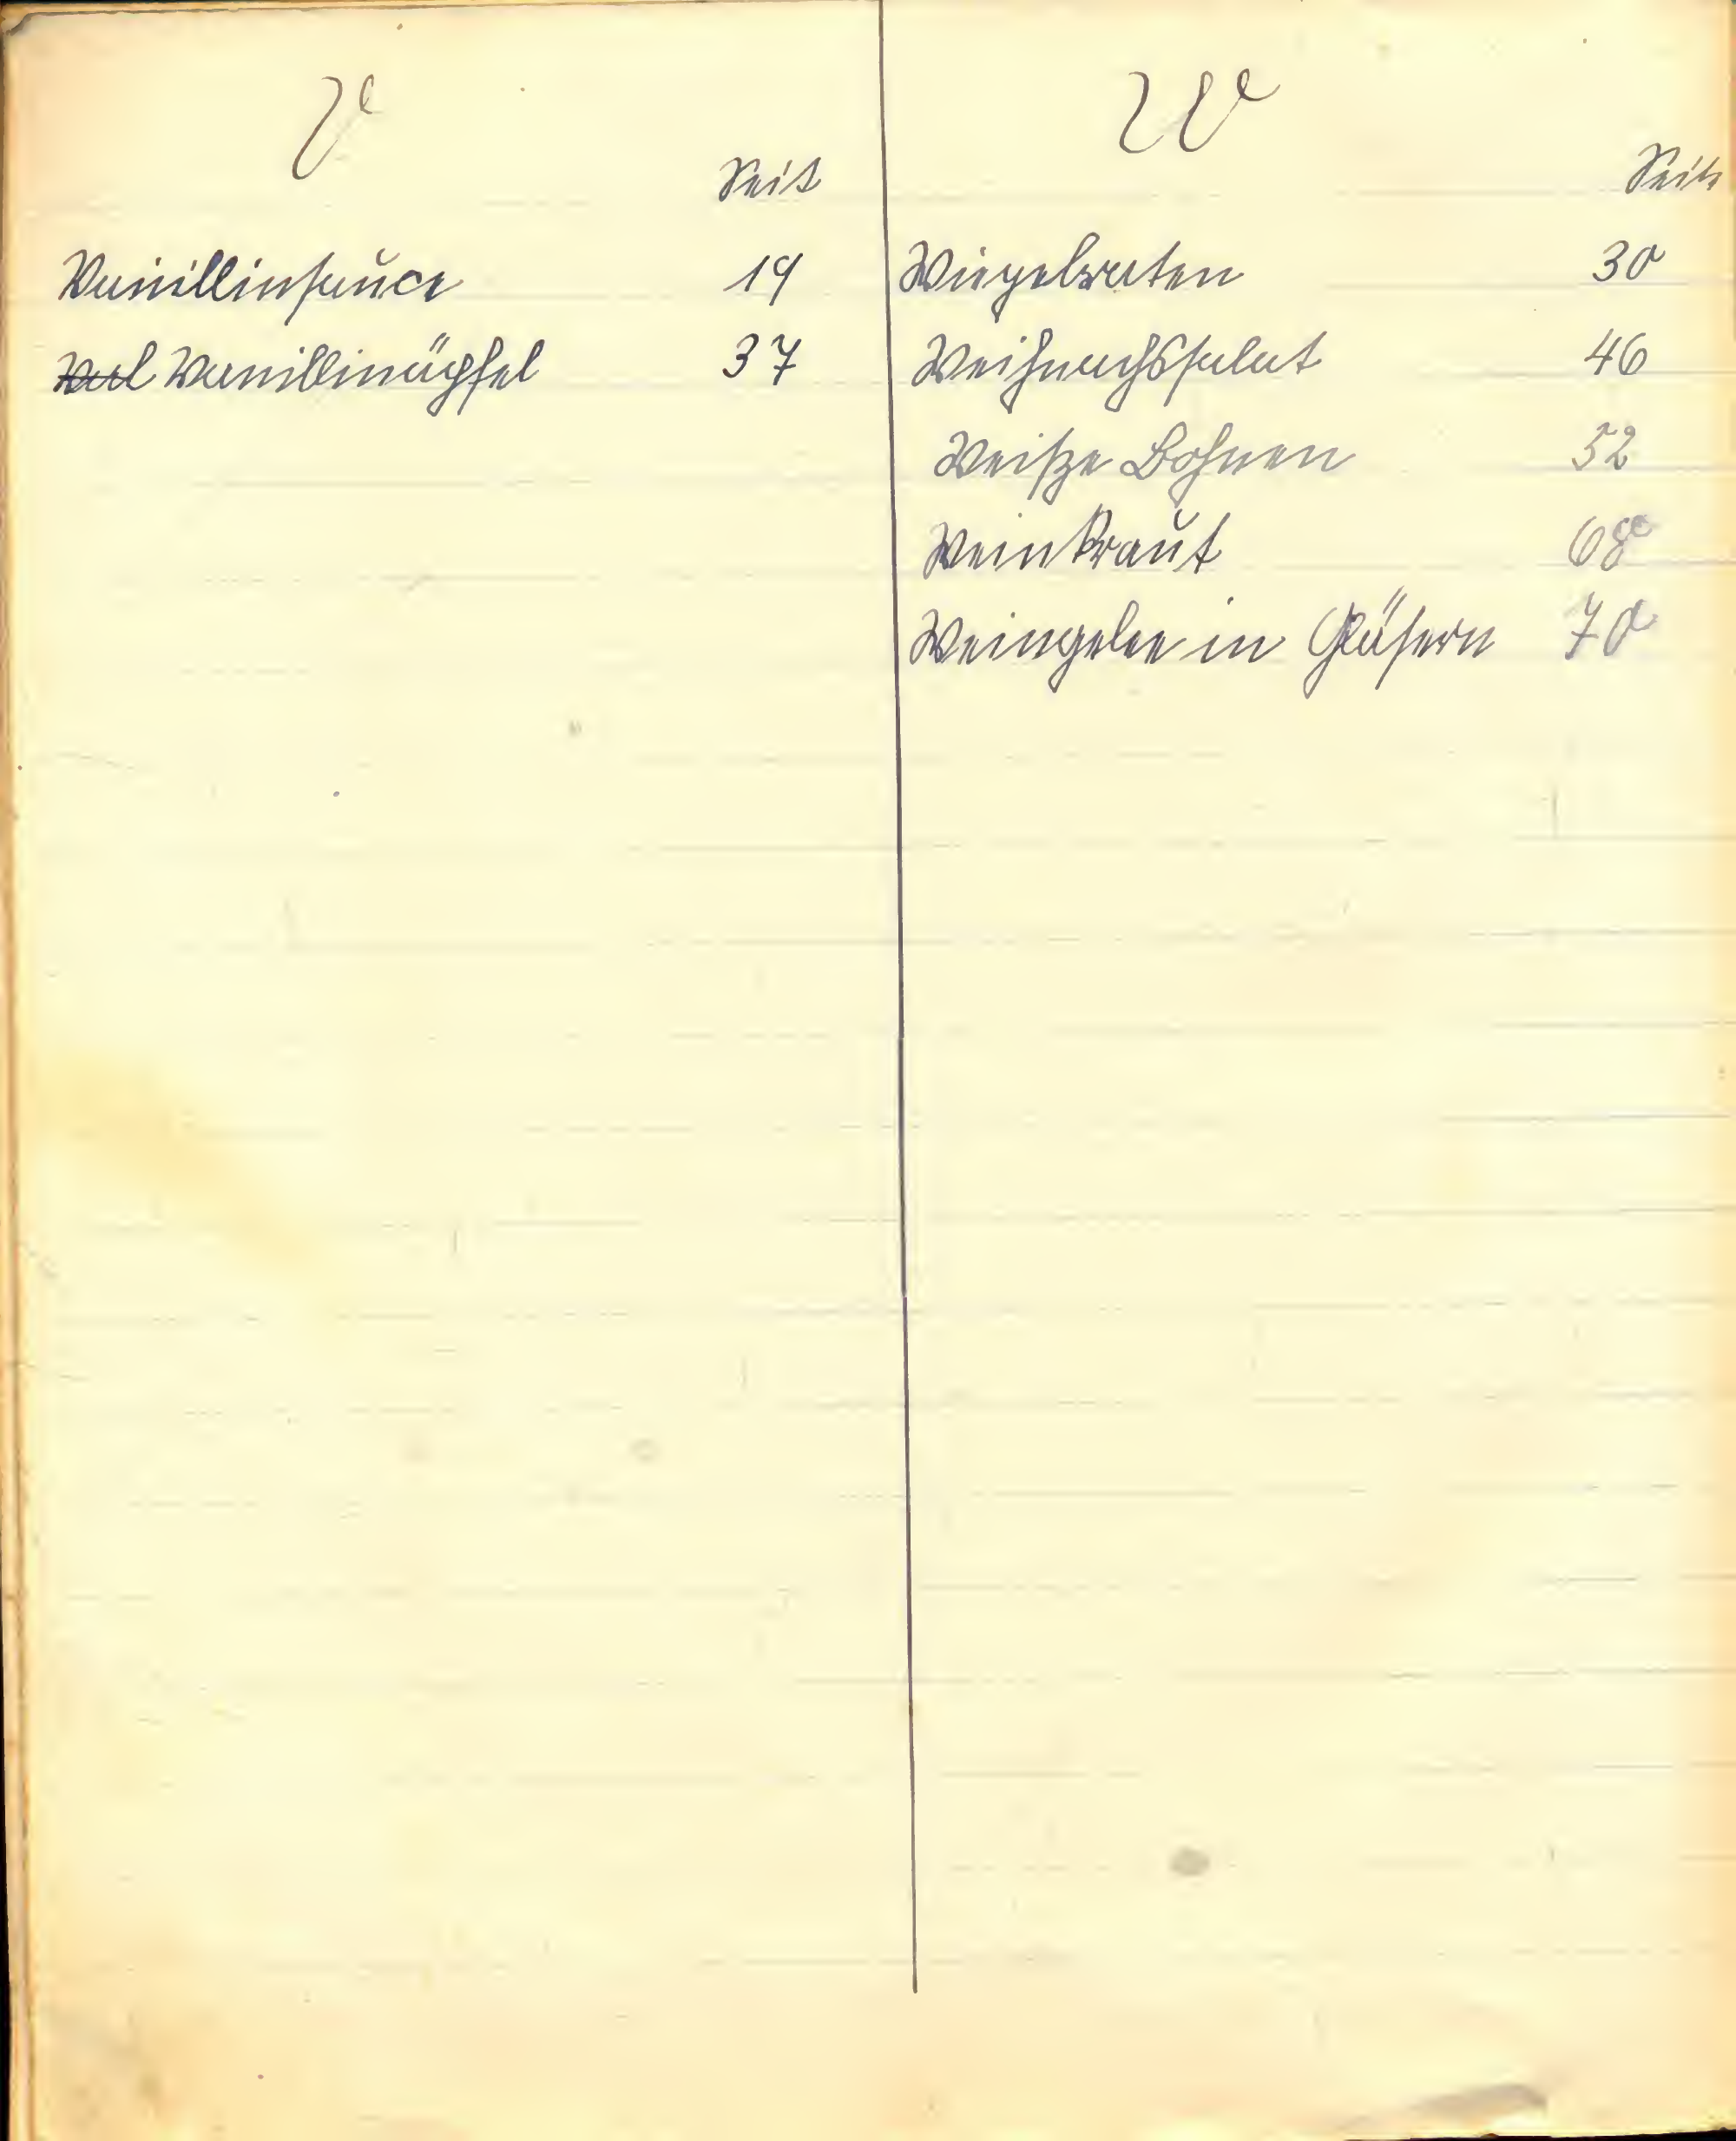 V
Seit
Vanillinsauce 19
Val Vanillinäpfel 37
W
Seite
Wiegelbraten 30
Weihnachssalat 46
Weiße Bohnen 52
Weinkraut 68
Weingelee in Gläsern 70